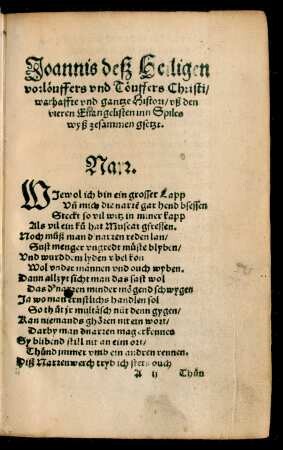 Joannis deß Heiligen
vorlöuffers vnd Töuffers Christi/
warhaffte vnd gantze Histori/ vß den
vieren Euangelisten inn Spiles
wyß zesammen gsetzt.
Narr.
WJewol ich bin ein grosser Lapp
Vñ mich die narrē gar hend bsessen
Steckt so vil witz in miner kapp
Als vil ein ků hat Muscat gfressen.
Noch můß man d'narren reden lan/
Sust menger vngredt můste blyben/
Vnd wurd dem lyden vbel kon
Wol vnder mannen vnd ouch wyben.
Dann allzyt sicht man das fast wol
Das d'narren minder mögend schwygen
Ja wo man ernstlichs handlen sol
So thůt jr multäsch nüt denn gygen/
Kan niemands ghören nit ein wort/
Darby man d'narren mag erkennes
Sy blibend still nit an eim ort/
Thünd jmmer vmb ein andren rennen.
Diß Narrenwerch tryb ich stets ouch
A ij Thůn